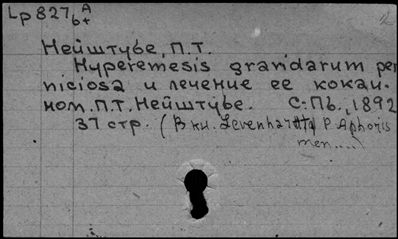 Lp 827 A
6+
Нейштубе, П.Т.
Hyperemesis grandarum per
niciosa и лечение ее кокаи-
ном. П.Т. Нейштубе. С.-Пб., 1892
37 стр. (В кн. Levenhardt P Aphoris
men....)